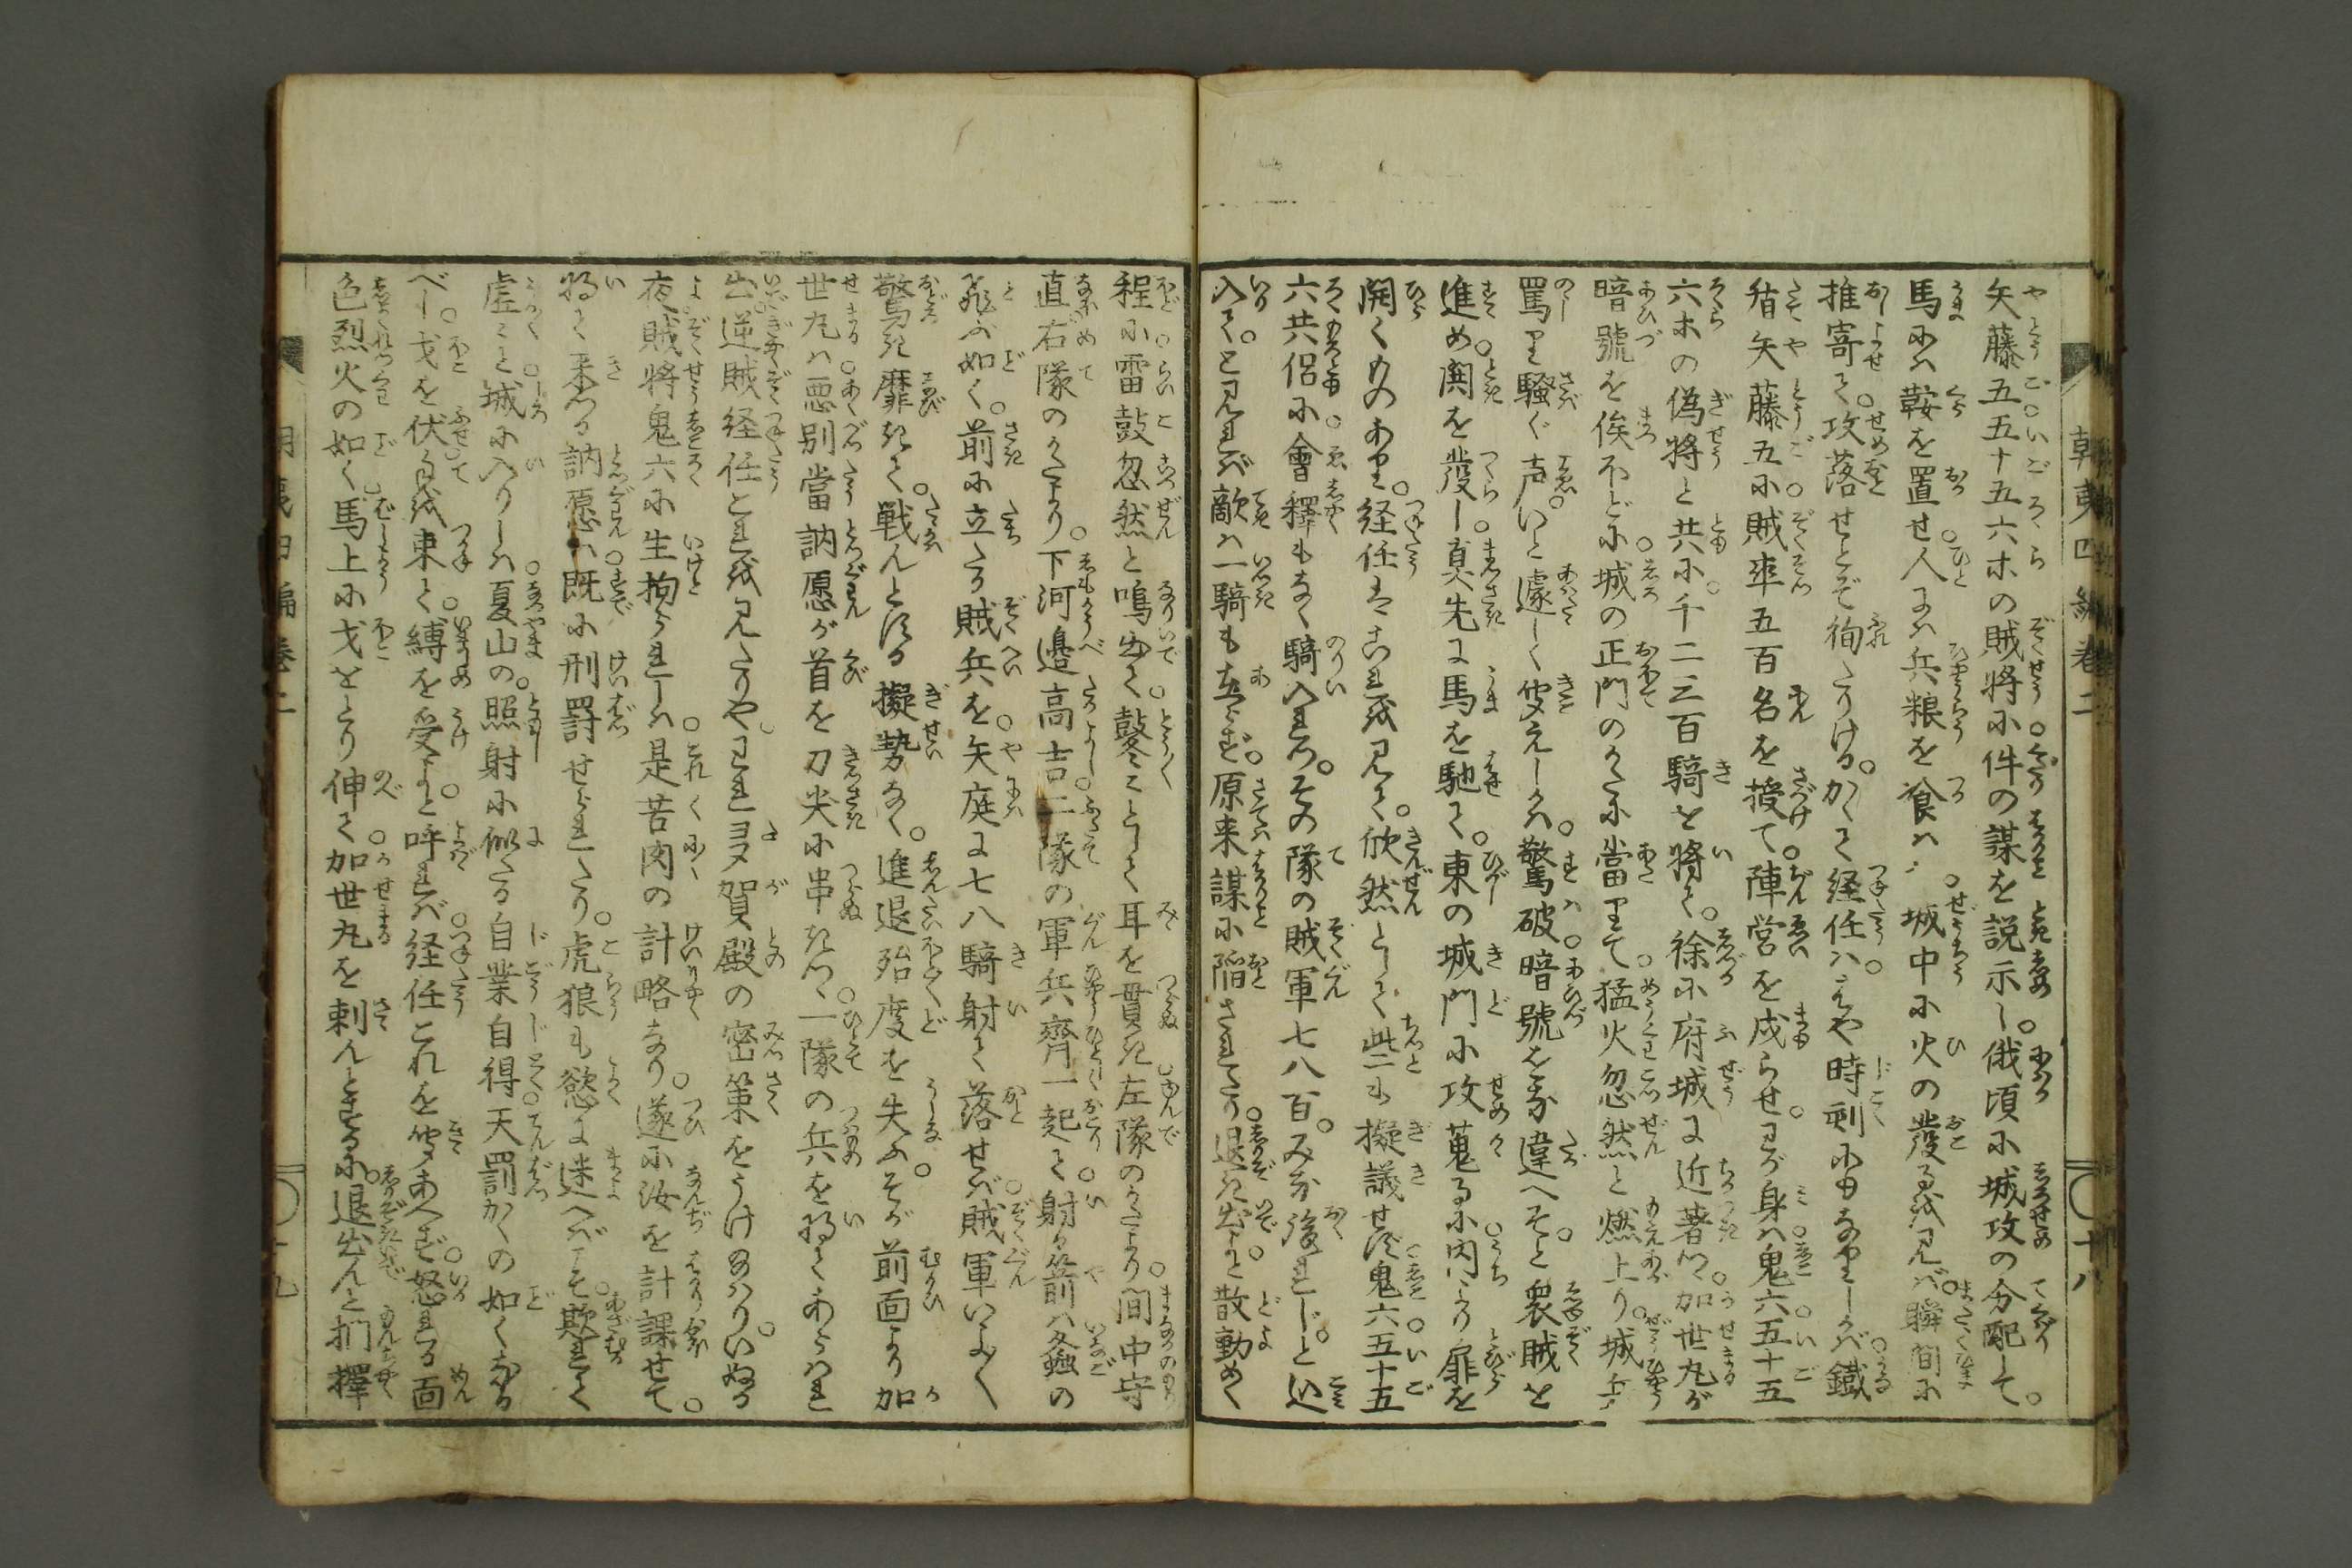 矢藤五五十五六ホの賊將に件の謀を説示し。俄頃に城攻の分配して。
馬には鞍を置せ。人には兵粮を飡はし。城中に火の發るを見ば。瞬間に
推寄て。攻落せとぞ徇たりける。かくて経任は。はや時刻に由なりしかば。鐵
楯矢藤五に。賊卒五百名を授て。陣営を戍らせ。わが身は鬼六五十五
六ホの偽將と共に。千二三百騎を將て。徐に府城に近着つ。加世丸が
暗號を俟ほどに。城の正門のかたに當りて。猛火忽然と燃上り。城兵
罵り騒ぐ声。いと遽しく聞えしかば。驚破暗號をな違へそと衆賊を
進め。閧を發し。真先に馬を馳て。東の城門に攻蒐るに。内より扉を
開くものあり。経任はこれを見て。欣然として些も擬議せず。鬼六五十五
六共侶に。會釋もなく騎入れば。その隊の賊軍七八百。みな後れじと込
入て。と見れば敵は一騎も在らず。原来謀に陥されたり。退き出よと散動めく
程に。雷鼓忽然と鳴出て。鼕々として耳を貫き。左隊のかたより。間中守
直。右隊のかたより。下河邉高吉。二隊の軍兵齊一起て。射る箭は螽の
飛ぶ如く。前に立たる賊兵を。矢庭に七八騎射て落せば。賊軍いよゝ
驚き靡きて。戦んとする擬勢なく。進退殆度を失ふ。そが前面より加
世丸は。悪別當訥愿が首を刀尖に串きつ。一隊の兵を將てあらはれ
出。逆賊経任これを見たりや。われヨヌ賀殿の密策をうけ給はり。いぬる
夜賊將鬼六に生拘られしは。是苦肉の計略なり。遂に汝を計課せて。
將て来つる訥愿は。既に刑罰せられたり。虎狼も慾に迷へばこそ。欺れて
虚々と城に入りしは。夏山の照射に似たる自業自得。天罰かくの如くなる
べし。戈を伏。手を束て。縛を受よと呼れば。経任これを聞あへず。怒れる面
色烈火の如く。馬上に戈をとり伸て。加世丸を刺んとするに。退出んと捫擇
朝夷四編卷二
十八
朝夷四編卷二
十九